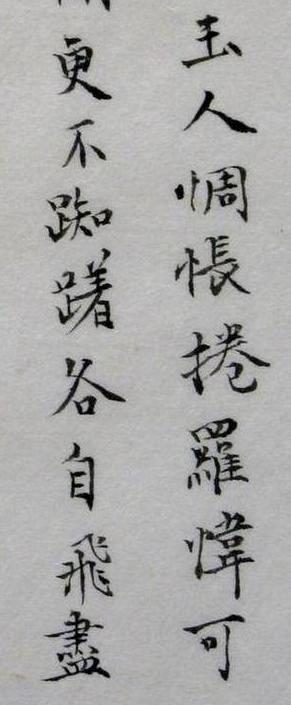 玉人惆悵捲羅幃可
更不踟躇各自飛盡